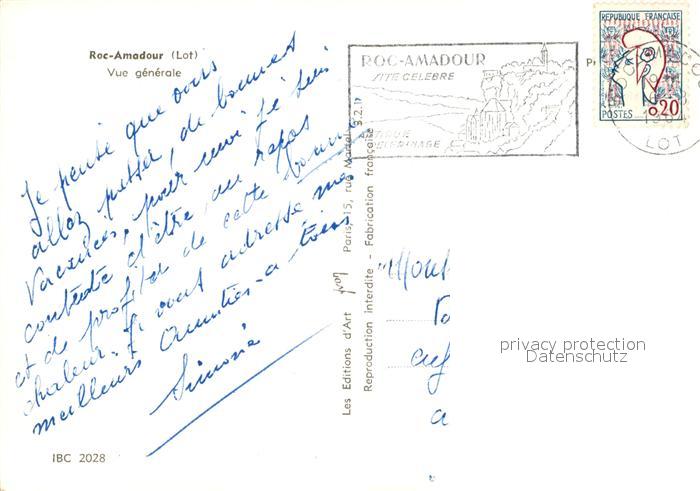 Roc-Amadour (Lot)
Vue générale
Je pense que vous
allez passer de bonnes
Vacances, pour moi je suis
contente d'être au repos
et de profiter de cette bonne
chaleur. Je vous adresse mes
meilleurs Amitiés a tous
Simone
IBC 2028
Les Editions d'Art
Paris, 15, rue Martel
3.2.11
Reproduction interdite - Fabrication française
ROC-AMADOUR
SITE CELEBRE
REPUBLIQUE FRANÇAISE
0,20
POSTES
LOT
privacy protection
Datenschutz